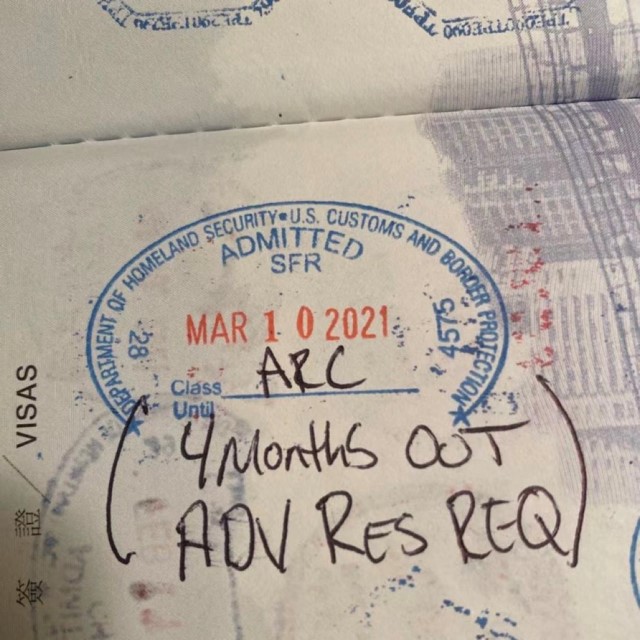 DEPARTMENT OF HOMELAND SECURITY • U.S. CUSTOMS AND BORDER PROTECTION
ADMITTED
SFR
28
MAR 10 2021
4575
Class ARC
Until
(4 Months OUT
ADV RES REQ)
簽證 / VISAS